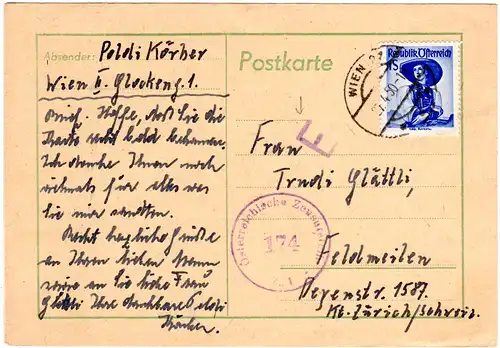 Absender: Poldi Körber
Wien II. Glockeng. 1.
Postkarte
WIEN
Republik Österreich
Hoffe, daß Sie die
Karte bald bekommen.
Ich danke Ihnen noch
vielmals für alles was
Sie mir sandten.
Recht herzliche Grüße
an Ihren lieben Mann
an Sie liebe Frau
Glättli Ihre dankbare Poldi
Körber.
F
Frau
Trudi Glättli,
Österreichische Zensurstelle
174
Feldmeilen
1587.
Kt. Zürich/Schweiz.